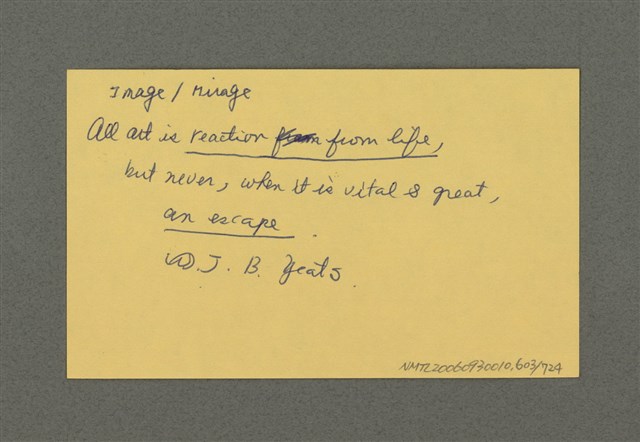 Image / Mirage
All art is reaction from from life,
but never, when it is vital & great,
an escape.
J. B. Yeats.
NMTL20060930010.603/724